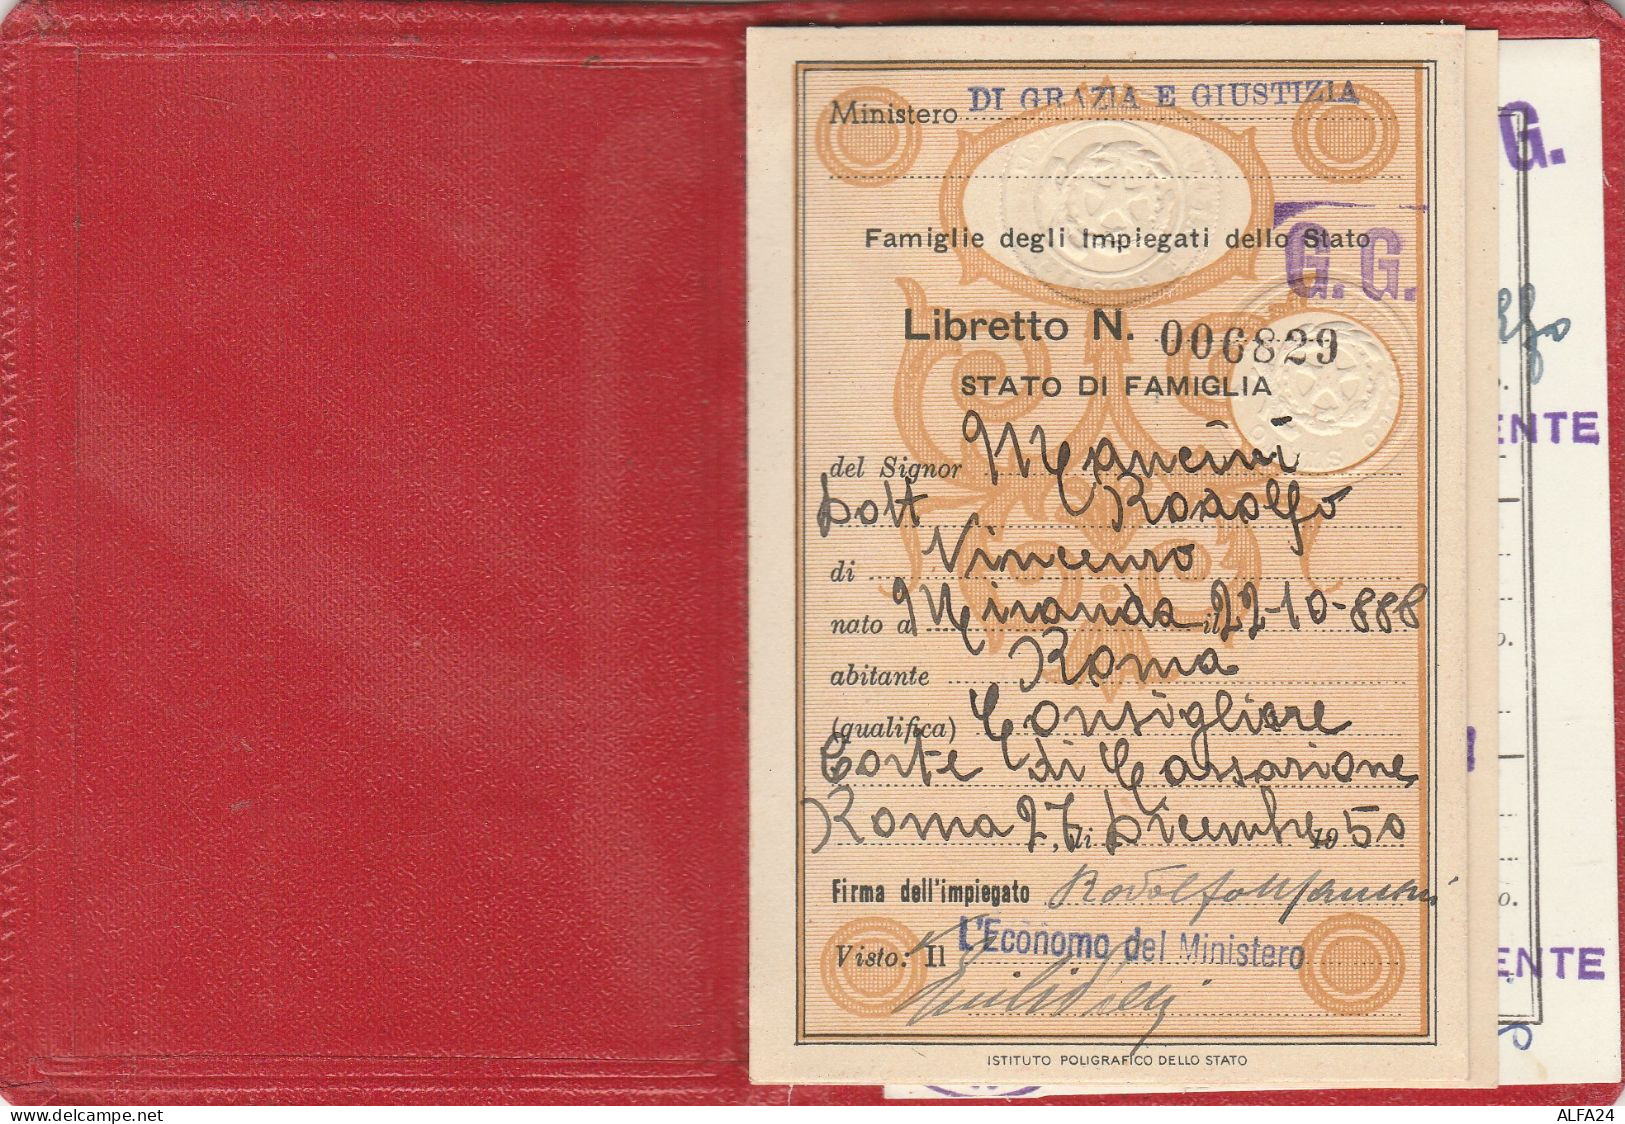 Ministero DI GRAZIA E GIUSTIZIA
Famiglie degli Impiegati dello Stato
G. G.
Libretto N. 006829
STATO DI FAMIGLIA
del Signor Mancini
Dott Rodolfo
di Vincenzo
nato a Miranda il 22-10-888
abitante Roma
(qualifica) Consigliere
Corte di Cassazione
Roma 27, di Dicembre 1950
Firma dell'impiegato Rodolfo Mancini
Visto: Il L'Economo del Ministero
ISTITUTO POLIGRAFICO DELLO STATO
G.
ENTE
o.
ENTE
ALFA24